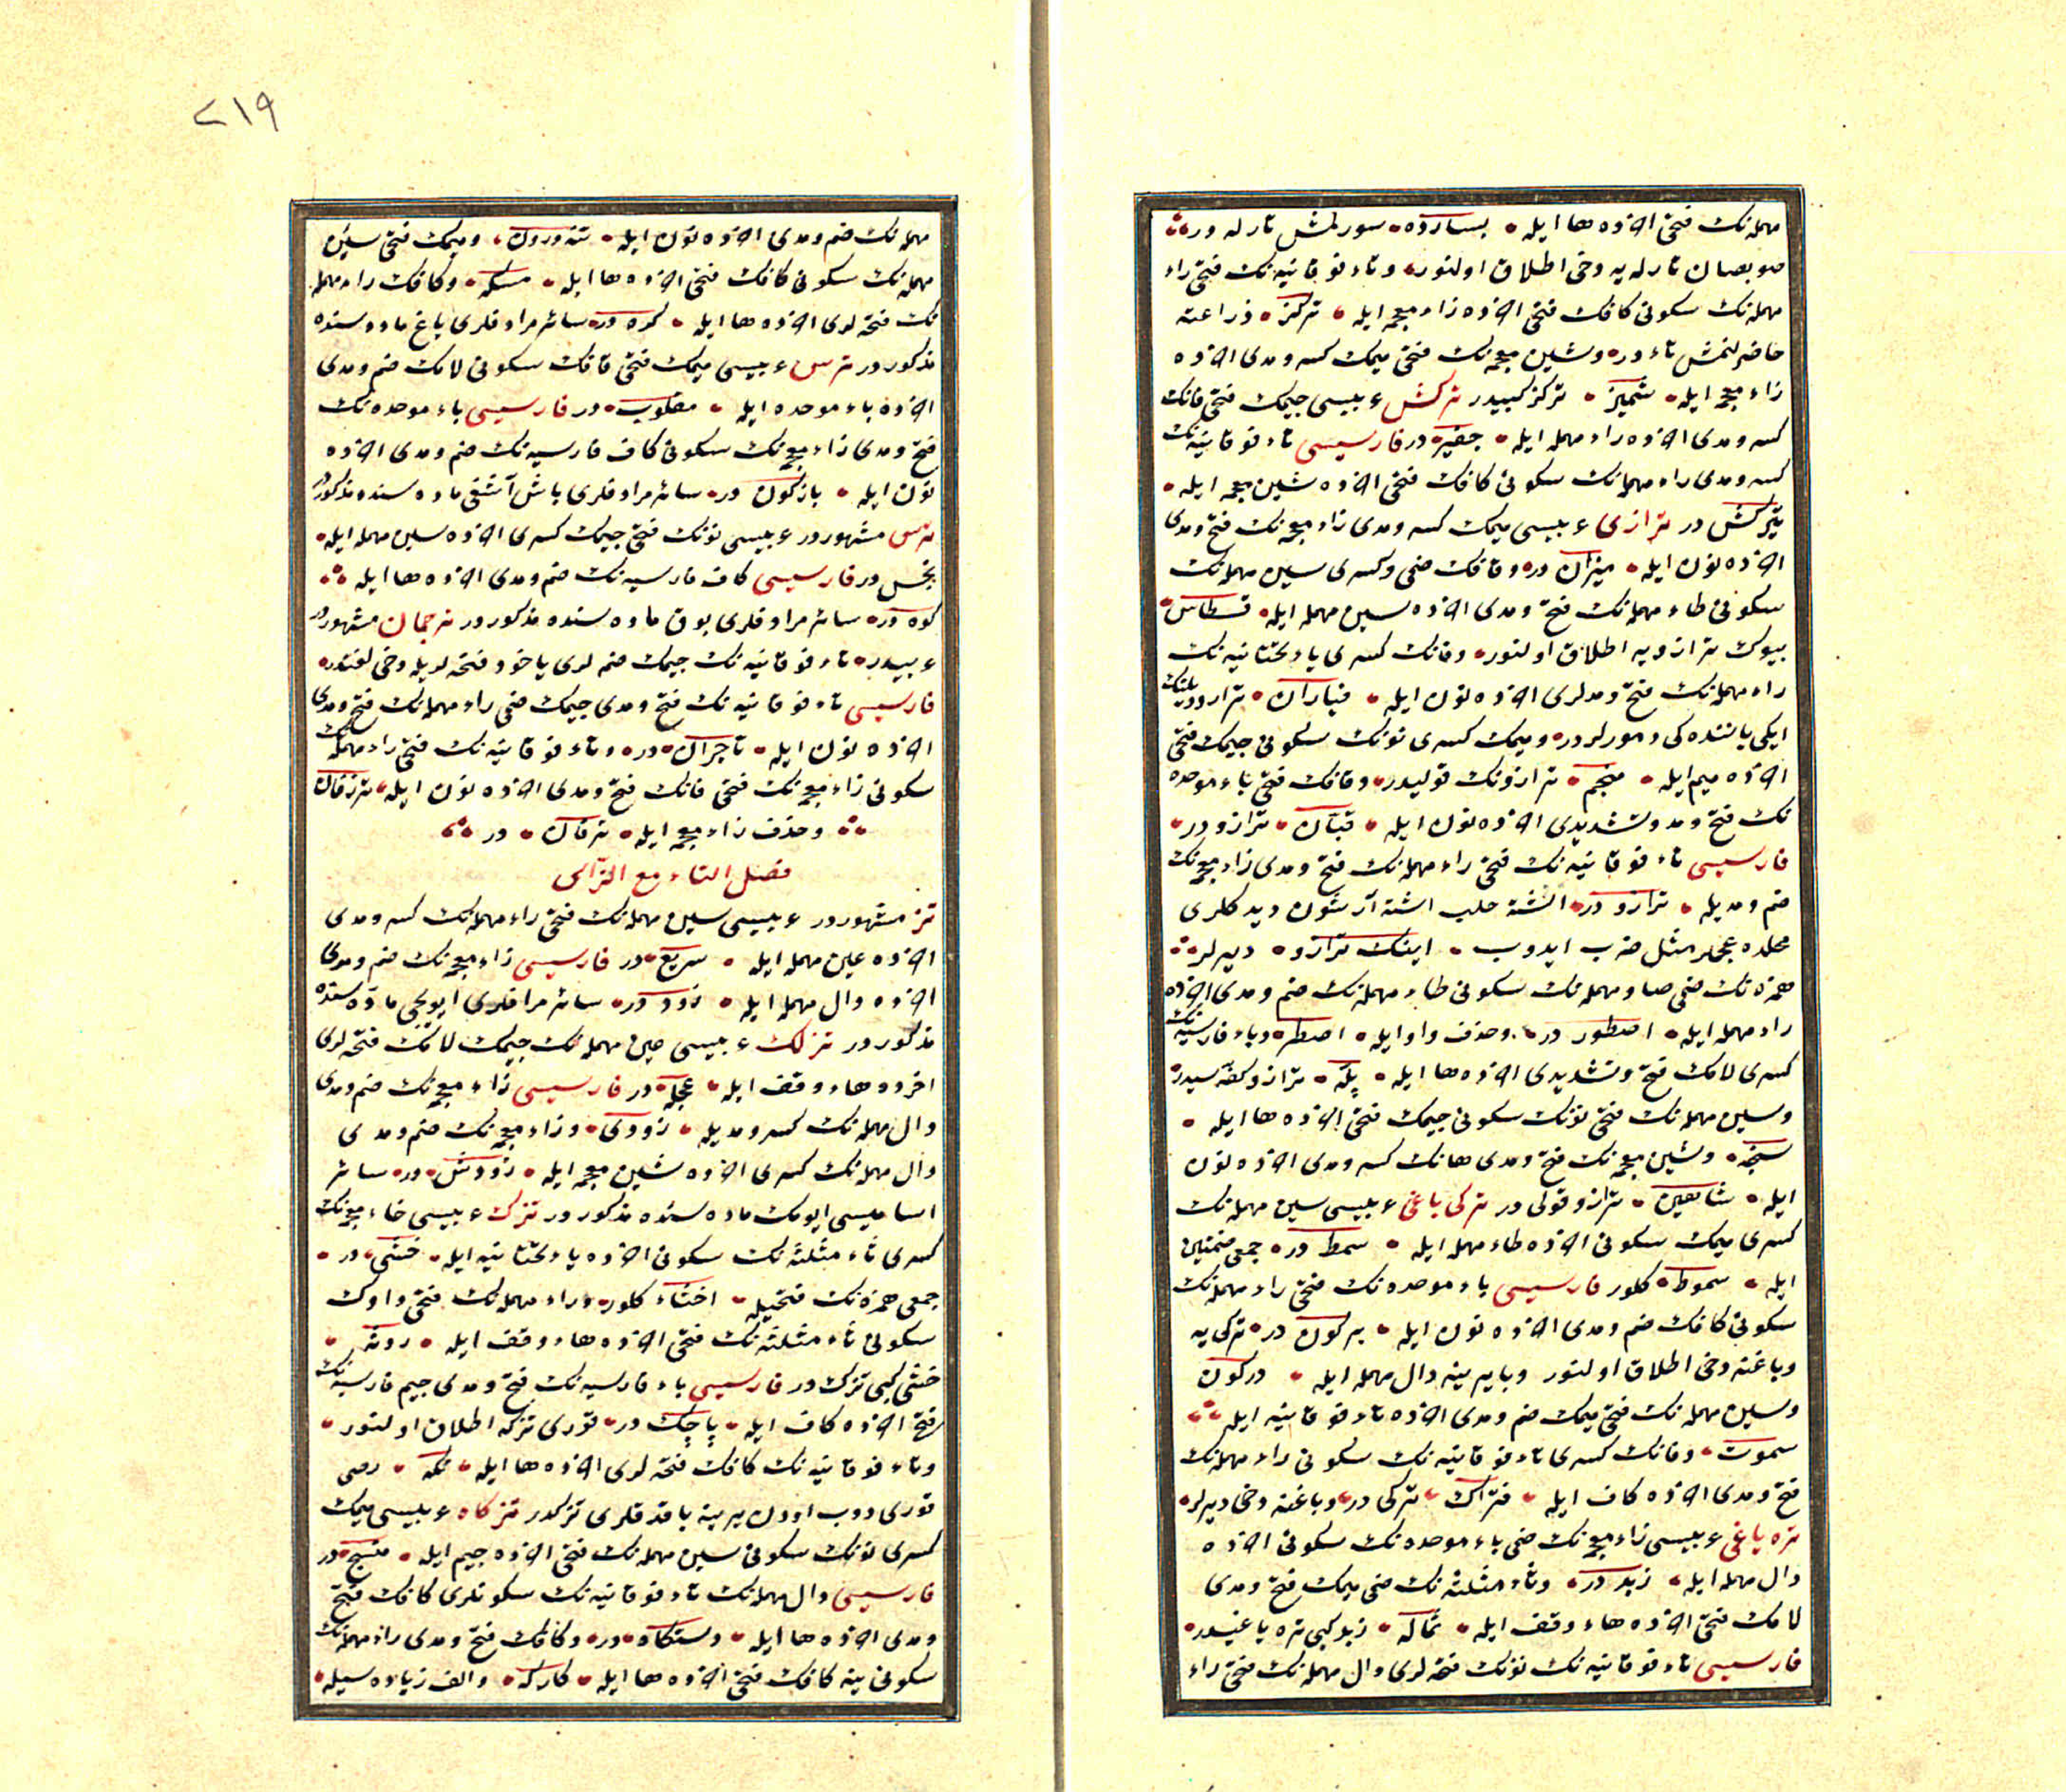 مهمله‌نك فتحى اخرده ها ايله بسارده سورلمش تارله در
صو بصان تارله يه دخى اطلاق اولنور وتاء فوقانيه نك فتحى راء
مهمله نك سكونى كافك فتحى اخرده زاء معجمه ايله تركز ذراعته
حاضرلنمش تاء در وشين معجمه نك فتحى ميمك كسر ومدى اخرده
زاء معجمه ايله شميز تركز كبيدر تركش عربيسى جيمك فتحى فانك
كسر ومدى اخرده راء مهمله ايله جفير در فارسيسى تاء فوقانيه نك
كسر ومدى راء مهمله نك سكونى كافك فتحى اخرده شين معجمه ايله
تيركش در ترازى عربيسى ميمك كسر ومدى زاء معجمه نك فتح ومدى
اخرده نون ايله ميزان در وقافك ضمى وكسرى سين مهمله نك
سكونى طاء مهمله نك فتح ومدى اخرده سين مهمله ايله قسطاس
بيوك ترازويه اطلاق اولنور وفانك كسرى ياء تحتانيه نك
راء مهمله نك فتح ومدلرى اخرده نون ايله فياران ترازو ديلينك
ايكى ياننده كى دمورلردر وميمك كسرى نونك سكونى جيمك فتحى
اخرده ميم ايله منجم ترازونك قوليدر وقافك فتحى باء موحده
نك فتح ومد وتشديدى اخرده نون ايله قبّان ترازو در
فارسيسى تاء فوقانيه نك فتحى راء مهمله نك فتح ومدى زاء معجمه نك
ضم ومديله ترازو در اشته حلب اشته آرشون ديدكلرى
محلده عجملر مثل ضرب ايدوب اينك ترازو ديرلر
همزه نك ضمى صاد مهمله نك سكونى طاء مهمله نك ضم ومدى اخرده
راء مهمله ايله اصطور در وحذف واو ايله اصطر وباء فارسيه نك
كسرى لامك فتح وتشديدى اخرده ها ايله پله ترازو كفه سيدر
وسين مهمله نك فتحى نونك سكونى جيمك فتحى اخرده ها ايله
سنجه وشين معجمه نك فتح ومدى هانك كسر ومدى اخرده نون
ايله شاهين ترازو قولى در تركى باغى عربيسى سين مهمله نك
كسرى ميمك سكونى اخرده طاء مهمله ايله سمط در جمعى ضمتين
ايله سموط كلور فارسيسى باء موحده نك فتحى راء مهمله نك
سكونى كافك ضم ومدى اخرده نون ايله بركون در تركى يه
وباغنه دخى اطلاق اولنور وبا يرينه دال مهمله ايله دركون
وسين مهمله نك فتحى ميمك ضم ومدى اخرده تاء فوقانيه ايله
سموت وفانك كسرى تاء فوقانيه نك سكونى راء مهمله نك
فتح ومدى اخرده كاف ايله فتراك تركى در وباغنه دخى ديرلر
تره ياغى عربيسى زاء معجمه نك ضمى باء موحده نك سكونى اخرده
دال مهمله ايله زبد در وثاء مثلثه نك ضمى ميمك فتح ومدى
لامك فتحى اخرده هاء وقف ايله ثماله زبد كبى تره ياغيدر
فارسيسى تاء فوقانيه نك نونك فتحه لرى دال مهمله نك فتحى راء
٢١٩
مهمله نك ضم ومدى اخرده نون ايله تندورون وميمك فتحى سين
مهمله نك سكونى كافك فتحى اخرده ها ايله مسكه وكافك راء مهمله
نك فتحه لرى اخرده ها ايله كره در سائر مرادفلرى ياغ ماده سنده
مذكوردر ترس عربيسى ميمك فتحى قافك سكونى لامك ضم ومدى
اخرده باء موحده ايله مقلوب در فارسيسى باء موحده نك
فتح ومدى زاء معجمه نك سكونى كاف فارسيه نك ضم ومدى اخرده
نون ايله بازكون در سائر مرادفلرى باش آشغى ماده سنده مذكوردر
ترس مشهوردر عربيسى نونك فتحى جيمك كسرى اخرده سين مهمله ايله
نجس در فارسيسى كاف فارسيه نك ضم ومدى اخرده ها ايله
كوه در سائر مرادفلرى بوق ماده سنده مذكوردر ترجمان مشهوردر
عربيدر تاء فوقانيه نك جيمك ضمه لرى ياخود فتحه لريله دخى لغتدر
فارسيسى تاء فوقانيه نك فتح ومدى جيمك ضمى راء مهمله نك فتح ومدى
اخرده نون ايله تاجران در وتاء فوقانيه نك فتحى راء مهمله نك
سكونى زاء معجمه نك فتحى فانك فتح ومدى اخرده نون ايله ترزفان
وحذف زاء معجمه ايله ترفان در
فصل التاء مع الزّاى
تز مشهوردر عربيسى سين مهمله نك فتحى راء مهمله نك كسر ومدى
اخرده عين مهمله ايله سريع در فارسيسى زاء معجمه نك ضم ومدى
اخرده دال مهمله ايله زود در سائر مرادفلرى ايويجى ماده سنده
مذكوردر تزلك عربيسى عين مهمله نك جيمك لامك فتحه لرى
اخرده هاء وقف ايله عجله در فارسيسى زاء معجمه نك ضم ومدى
دال مهمله نك كسر ومديله زودى وزاء معجمه نك ضم ومدى
دال مهمله نك كسرى اخرده شين معجمه ايله زودش در سائر
اساميسى ايومك ماده سنده مذكوردر تزك عربيسى خاء معجمه نك
كسرى ثاء مثلثه نك سكونى اخرده ياء تحتانيه ايله خثى در
جمعى همزه نك فتحيله اخثاء كلور وراء مهمله نك فتحى واوك
سكونى ثاء مثلثه نك فتحى اخرده هاء وقف ايله روثه
خثى كبى تزك در فارسيسى باء فارسيه نك فتح ومدى جيم فارسيه نك
فتحى اخرده كاف ايله پاچك در قورى تزكه اطلاق اولنور
وتاء فوقانيه نك كافك فتحه لرى اخرده ها ايله تكه دخى
قورى دوب اودون يرينه ياقدقلرى تزكدر تزكاه عربيسى ميمك
كسرى نونك سكونى سين مهمله نك فتحى اخرده جيم ايله منسج در
فارسيسى دال مهمله نك تاء فوقانيه نك سكونلرى كافك فتح
ومدى اخرده ها ايله دستكاه در وكافك فتح ومدى راء مهمله نك
سكونى ينه كافك فتحى اخرده ها ايله كاركه والف زياده سيله